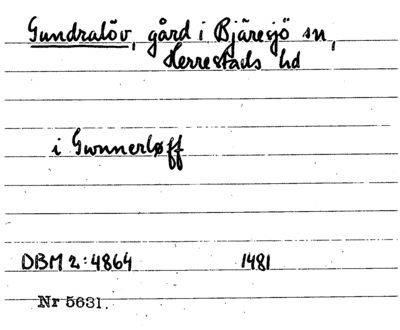 Gundralöv, gård i Bjäresjö sn,
Herrestads hd
i Gwnnerløff
DBM 2:4864 1481
Nr 5631.